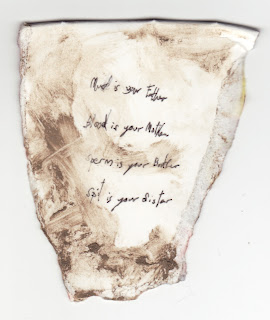 Mud is your Father
blood is your Mother
is your Brother
Salt is your Sister